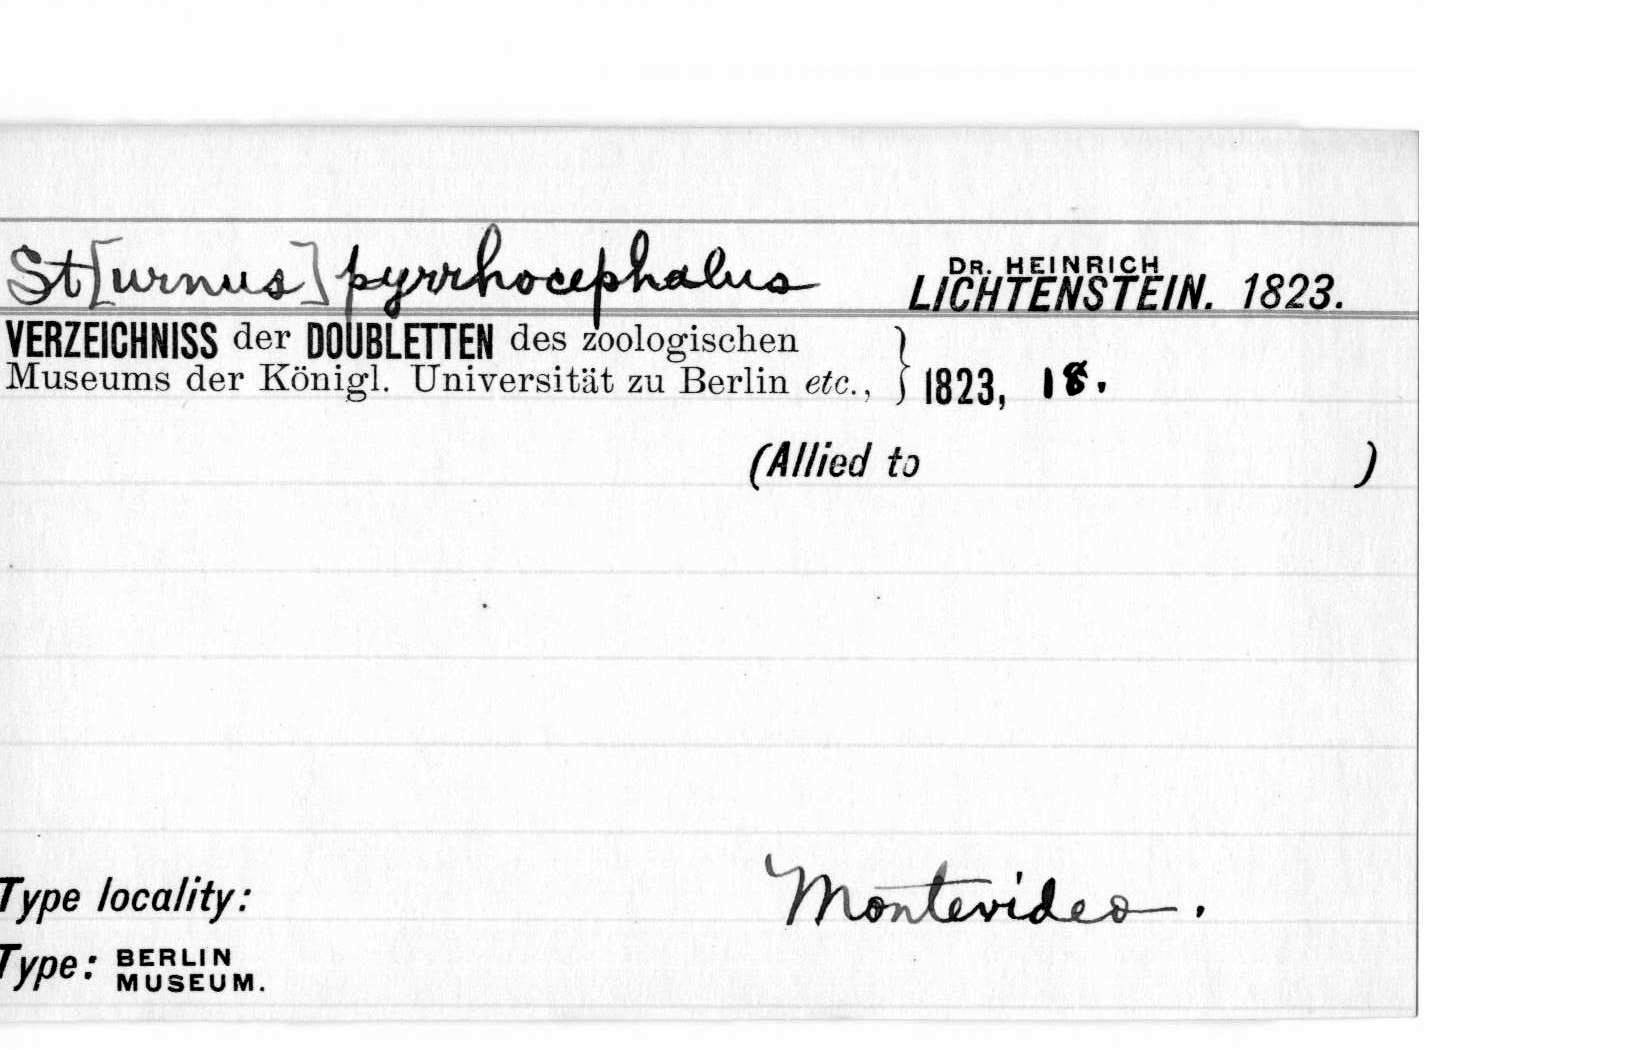 St[urnus] pyrrhocephalus DR. HEINRICH LICHTENSTEIN. 1823.
VERZEICHNISS der DOUBLETTEN des zoologischen
Museums der Königl. Universität zu Berlin etc., } 1823, 18.
(Allied to )
Type locality: Montevideo.
Type: BERLIN MUSEUM.